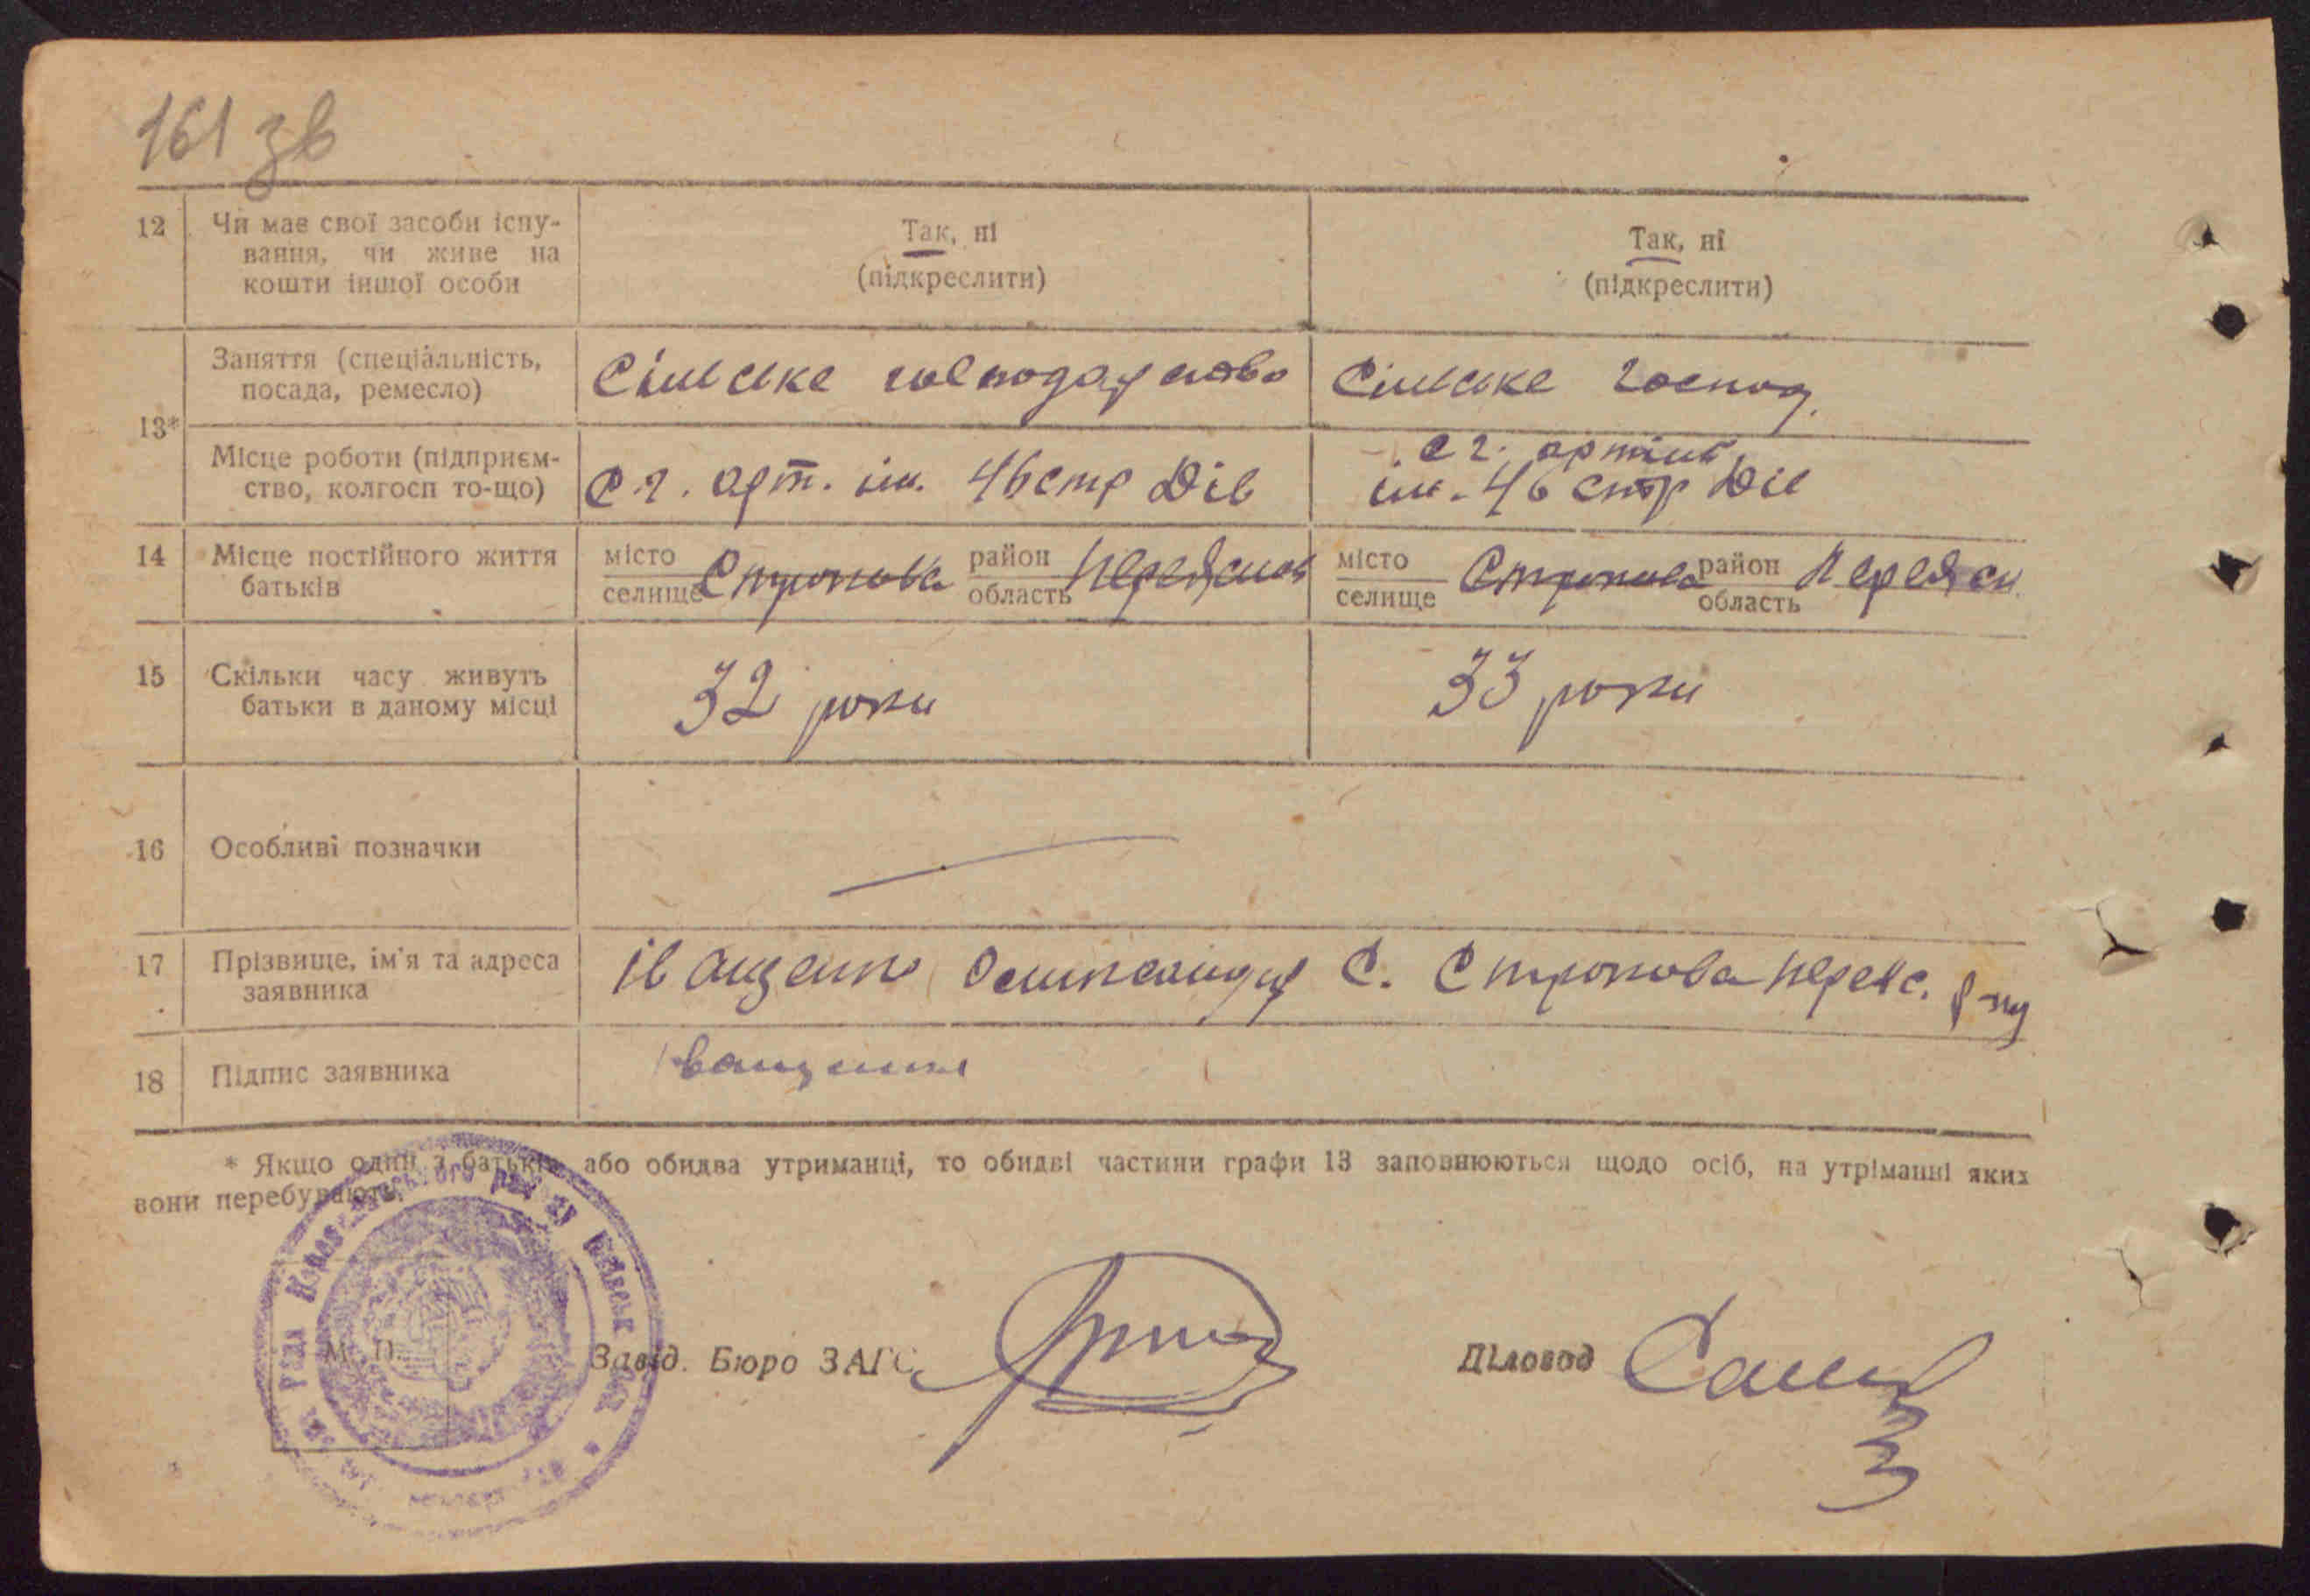 161 зв
12 Чи має свої засоби існу- Так, ні Так, ні
вання, чи живе на
кошти іншої особи (підкреслити) (підкреслити)
Заняття (спеціальність, Сільське господарство Сільське господ.
посада, ремесло)
13*
Місце роботи (підприєм- с г. артіль
ство, колгосп то-що) С.г. арт. ім. 46 стр Див ім. 46 стр Див
14 Місце постійного життя місто Строкова район Переяслов місто Строкова район Переясл
батьків селище область селище область
15 Скільки часу живуть 32 роки 33 роки
батьки в даному місці
16 Особливі позначки
17 Прізвище, ім'я та адреса Іващенко Олександр С. Строкова Переяс. р-ну
заявника
18 Підпис заявника Іващенко
* Якщо один з батьків або обидва утриманці, то обидві частини графи 13 заповнюються щодо осіб, на утріманні яких
вони перебувають.
М. П.
Завід. Бюро ЗАГС Діловод